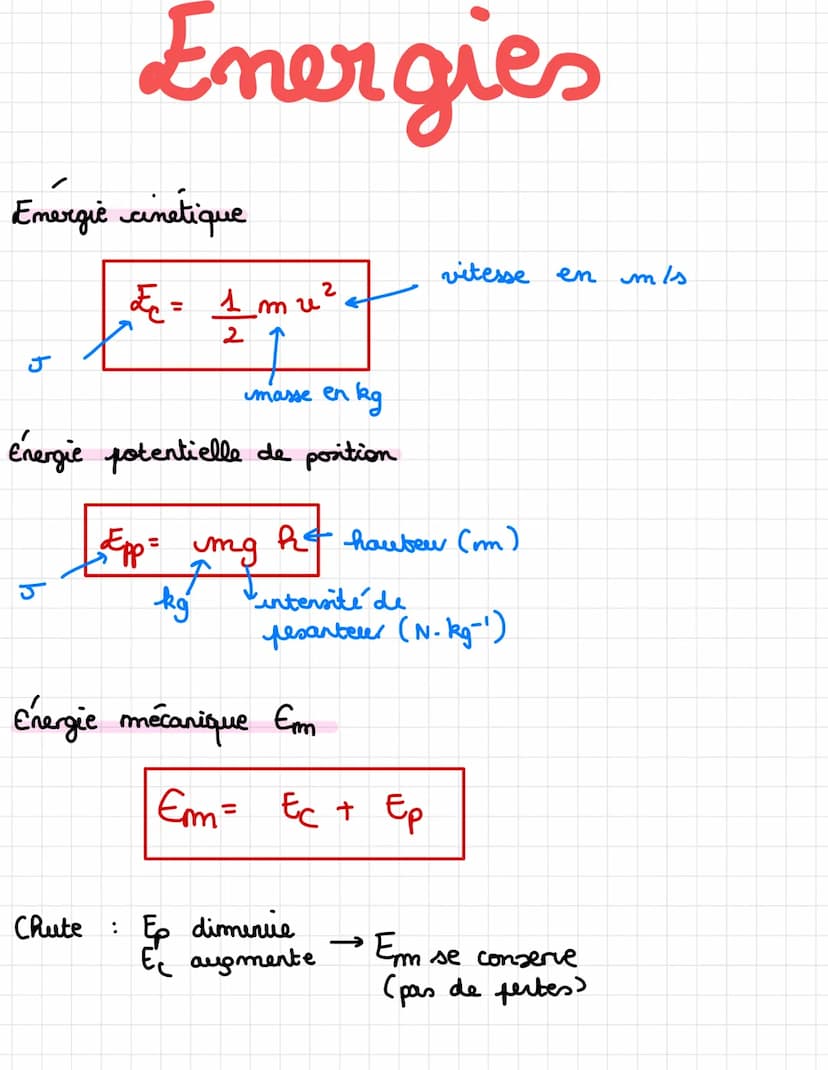 Energies
Énergie cinétique
vitesse en m/s
Ec = 1/2 m v²
J
masse en kg
Énergie potentielle de position
Epp = mg h
hauteur (m)
J
kg
intensité de
pesanteur (N.kg⁻¹)
Énergie mécanique Em
Em = Ec + Ep
Chute : Ep diminue
Ec augmente → Em se conserve
(pas de pertes)